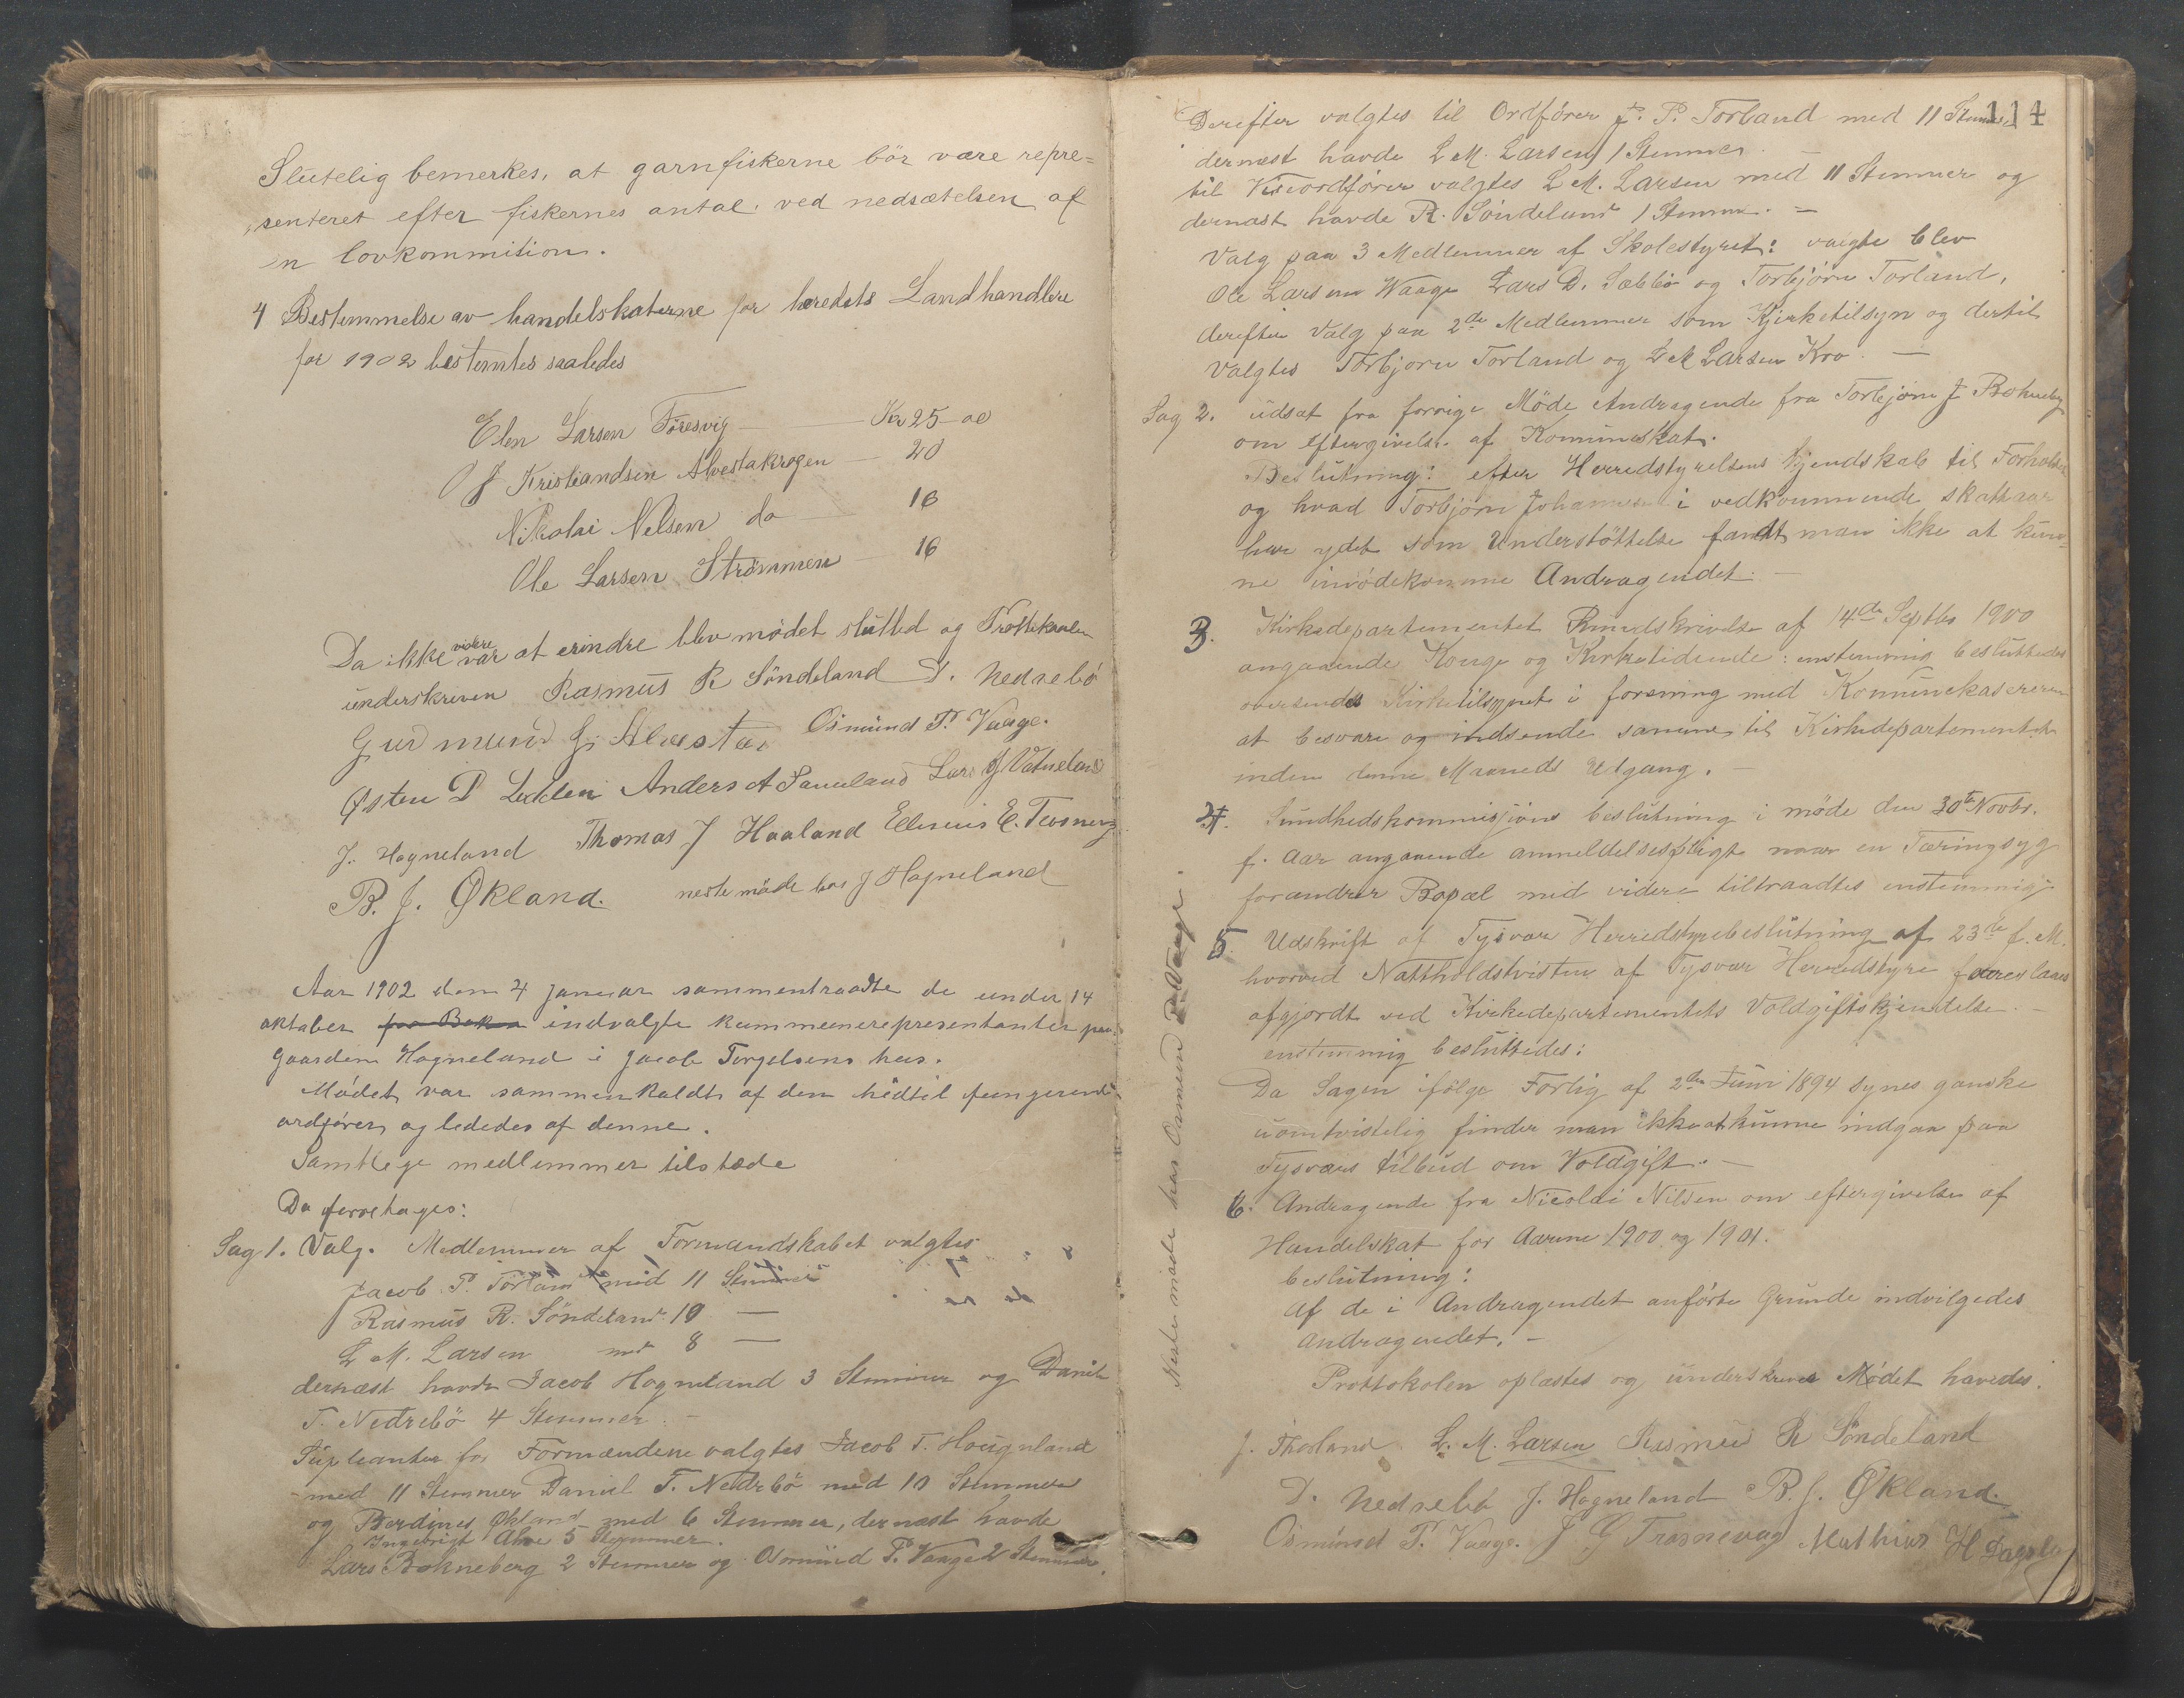 Slutelig bemerkes, at garnfiskerne bör være repre=
senteret efter fiskernes antal ved nedsætelsen af
en lovkommition.
4 Bestemmelse av handelskaterne for heredets Landhandlere
for 1902 bestemtes saaledes
Elen Larsen Føresvig Kr 25-00
J Kristiandsen Alvestakrogen 20
Nikolai Nelsen do 16
Ole Larsen Strømmen 16
Da ikke videre var at erindre blev mødet slutted og Prottokolen
underskreven Rasmus R Søndeland D. Nedrebö
Gudmund G. Alvestad Osmund P. Vaage.
Østen D Lodden Anders A Saueland Lars J Vatneland
J. Hogneland Thomas J Haaland Ellerius E. Trosnevag
B. J. Økland. neste möde hos J Hogneland
Aar 1902 den 4 januar sammentraadte de under 14
oktober paa Bokn indvalgte kommunerepresentanter paa
Gaarden Hogneland i Jacob Torgelsens hus.
Mødet var sammenkaldt af den hidtil fungerende
ordfører og lededes af denne.
Samtlege medlemmer tilstæde
Da foretages:
Sag 1. Valg. Medlemmer af Formandskabet valgtes
Jacob P. Torland med 11 Stemmer
Rasmus R. Söndeland 10 —
L M. Larsen med 8 —
dernæst havde Jacob Hogneland 3 Stemmer og Daniel
T. Nedrebö 4 Stemmer. -
Supleanter for Formændene valgtes Jacob T. Hougnland
med 11 Stemmer Daniel T. Nedrebö med 10 Stemmer
og Berdines Økland med 6 Stemmer, dernæst havde
Ingebrigt Alve 5 Stemmer.
Lars Bokneberg 2 Stemmer og Osmund P. Vaage 2 Stemmer.
Neste möde hos Osmund P. Vaage.
114
Derefter valgtes til Ordfører J. P. Torland med 11 Stemmer
dernæst havde L M. Larsen 1 Stemmer
til Viseordfører valgtes L M. Larsen med 11 Stemmer og
dernæst havde R. Söndeland 1 Stemme. —
Valg paa 3 Medlemmer af Skolestyret: valgte blev
Ole Larsen Waage Lars D. Sæbbö og Torbjörn Torland,
derefter Valg paa 2de Medlemmer som Kjerketilsyn og dertil
Valgtes Torbjorn Torland og L M Larsen Kro. —
Sag 2. udsat fra forrige Möde Andragende fra Torbjørn J Bokneberg
om eftergivelse af Komuneskat.
Beslutning: efter Herredstyrelsens kjendskab til Forholdene
og hvad Torbjörn Johannesen i vedkommende skattaar
har ydet som Understöttelse fandt man ikke at kun=
ne imödekomme Andragendet. —
3. Kirkedepartementet Rundskrivelse af 14de Septbr 1900
angaaende Konge og Kirketidende: enstemmig besluttedes
oversendes Kirketilsynet i forening med Komunekasereren
at besvare og indsende samme til Kirkedepartementet
inden denne Maaneds Udgang. —
4. Sundhedskommisjons beslutning i möde den 30te Novbr.
f. Aar angaaende anmeldelsespligt naar en Tæringsyg
forandrer Bopæl med videre tiltraadtes enstemmig.
5. Udskrift af Tysvær Herredstyrebeslutning af 23de f. M.
hvorved Nattholdstvisten af Tysvær Herredstyre foareslaaes
afgjordt ved Kirkedepartementets Voldgiftskjendelse. —
enstemmig besluttedes:
Da Sagen ifølge Forlig af 2den Juni 1894 synes ganske
uomtvistelig finder man ikke at kunne indgaa paa
Tysværs tilbud om Voldgift. —
6. Andragende fra Nicolai Nilsen om eftergivelse af
Handelskat for Aarene 1900 og 1901.
beslutning:
af de i Andragendet anförte Grunde indvilgedes
andragendet. —
Prottokolen oplæstes og underskreves Mødet hævedes.
J. Thorland L. M. Larsen Rasmus R Söndeland
D. Nedrebö J. Hogneland B. J. Økland.
Osmund P. Vaage. J G Trosnevag Mathias H